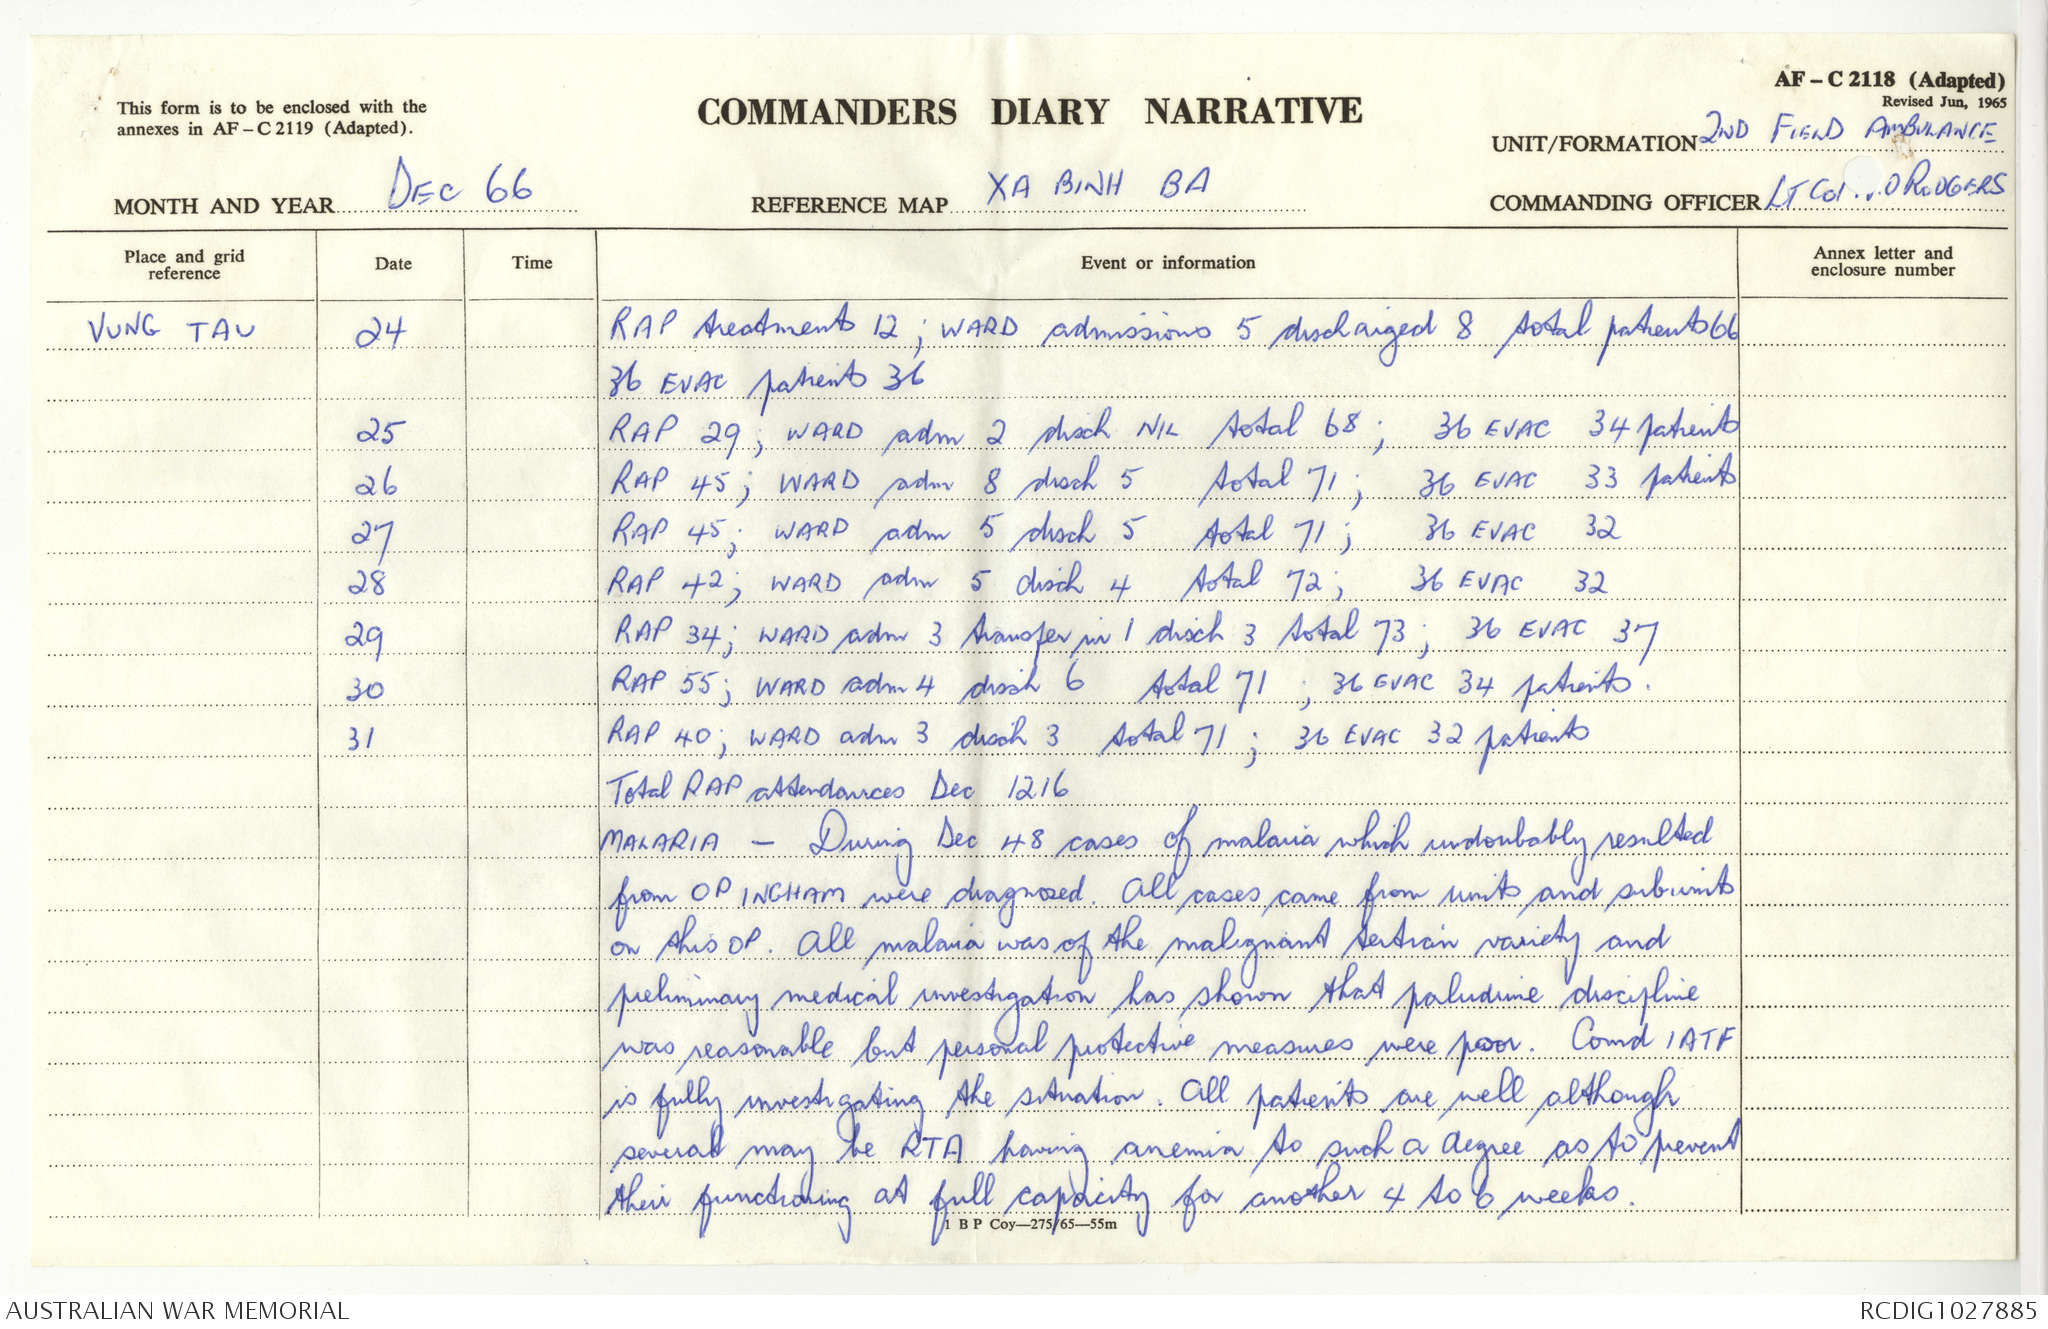 AF – C 2118 (Adapted)
Revised Jun, 1965
This form is to be enclosed with the
annexes in AF – C 2119 (Adapted).
COMMANDERS DIARY NARRATIVE
UNIT/FORMATION 2ND FIELD AMBULANCE
MONTH AND YEAR DEC 66
REFERENCE MAP XA BINH BA
COMMANDING OFFICER LT COL O RODGERS
Place and grid reference Date Time Event or information Annex letter and enclosure number
VUNG TAU 24 RAP treatments 12; WARD admissions 5 discharged 8 total patients 66
36 EVAC patients 36
25 RAP 29; WARD adm 2 disch NIL total 68; 36 EVAC 34 patients
26 RAP 45; WARD adm 8 disch 5 total 71; 36 EVAC 33 patients
27 RAP 45; WARD adm 5 disch 5 total 71; 36 EVAC 32
28 RAP 42; WARD adm 5 disch 4 total 72; 36 EVAC 32
29 RAP 34; WARD adm 3 transfer in 1 disch 3 total 73; 36 EVAC 37
30 RAP 55; WARD adm 4 disch 6 total 71; 36 EVAC 34 patients.
31 RAP 40; WARD adm 3 disch 3 total 71; 36 EVAC 32 patients
Total RAP attendances Dec 1216
MALARIA – During Dec 48 cases of malaria which undoubably resulted
from OP INGHAM were diagnosed. All cases came from units and subunits
on this OP. All malaria was of the malignant tertian variety and
preliminary medical investigation has shown that paludrine discipline
was reasonable but personal protective measures were poor. Comd 1ATF
is fully investigating the situation. All patients are well although
several may be RTA having anemia to such a degree as to prevent
their functioning at full capacity for another 4 to 6 weeks.
1 B P Coy—275/65—55m
AUSTRALIAN WAR MEMORIAL
RCDIG1027885